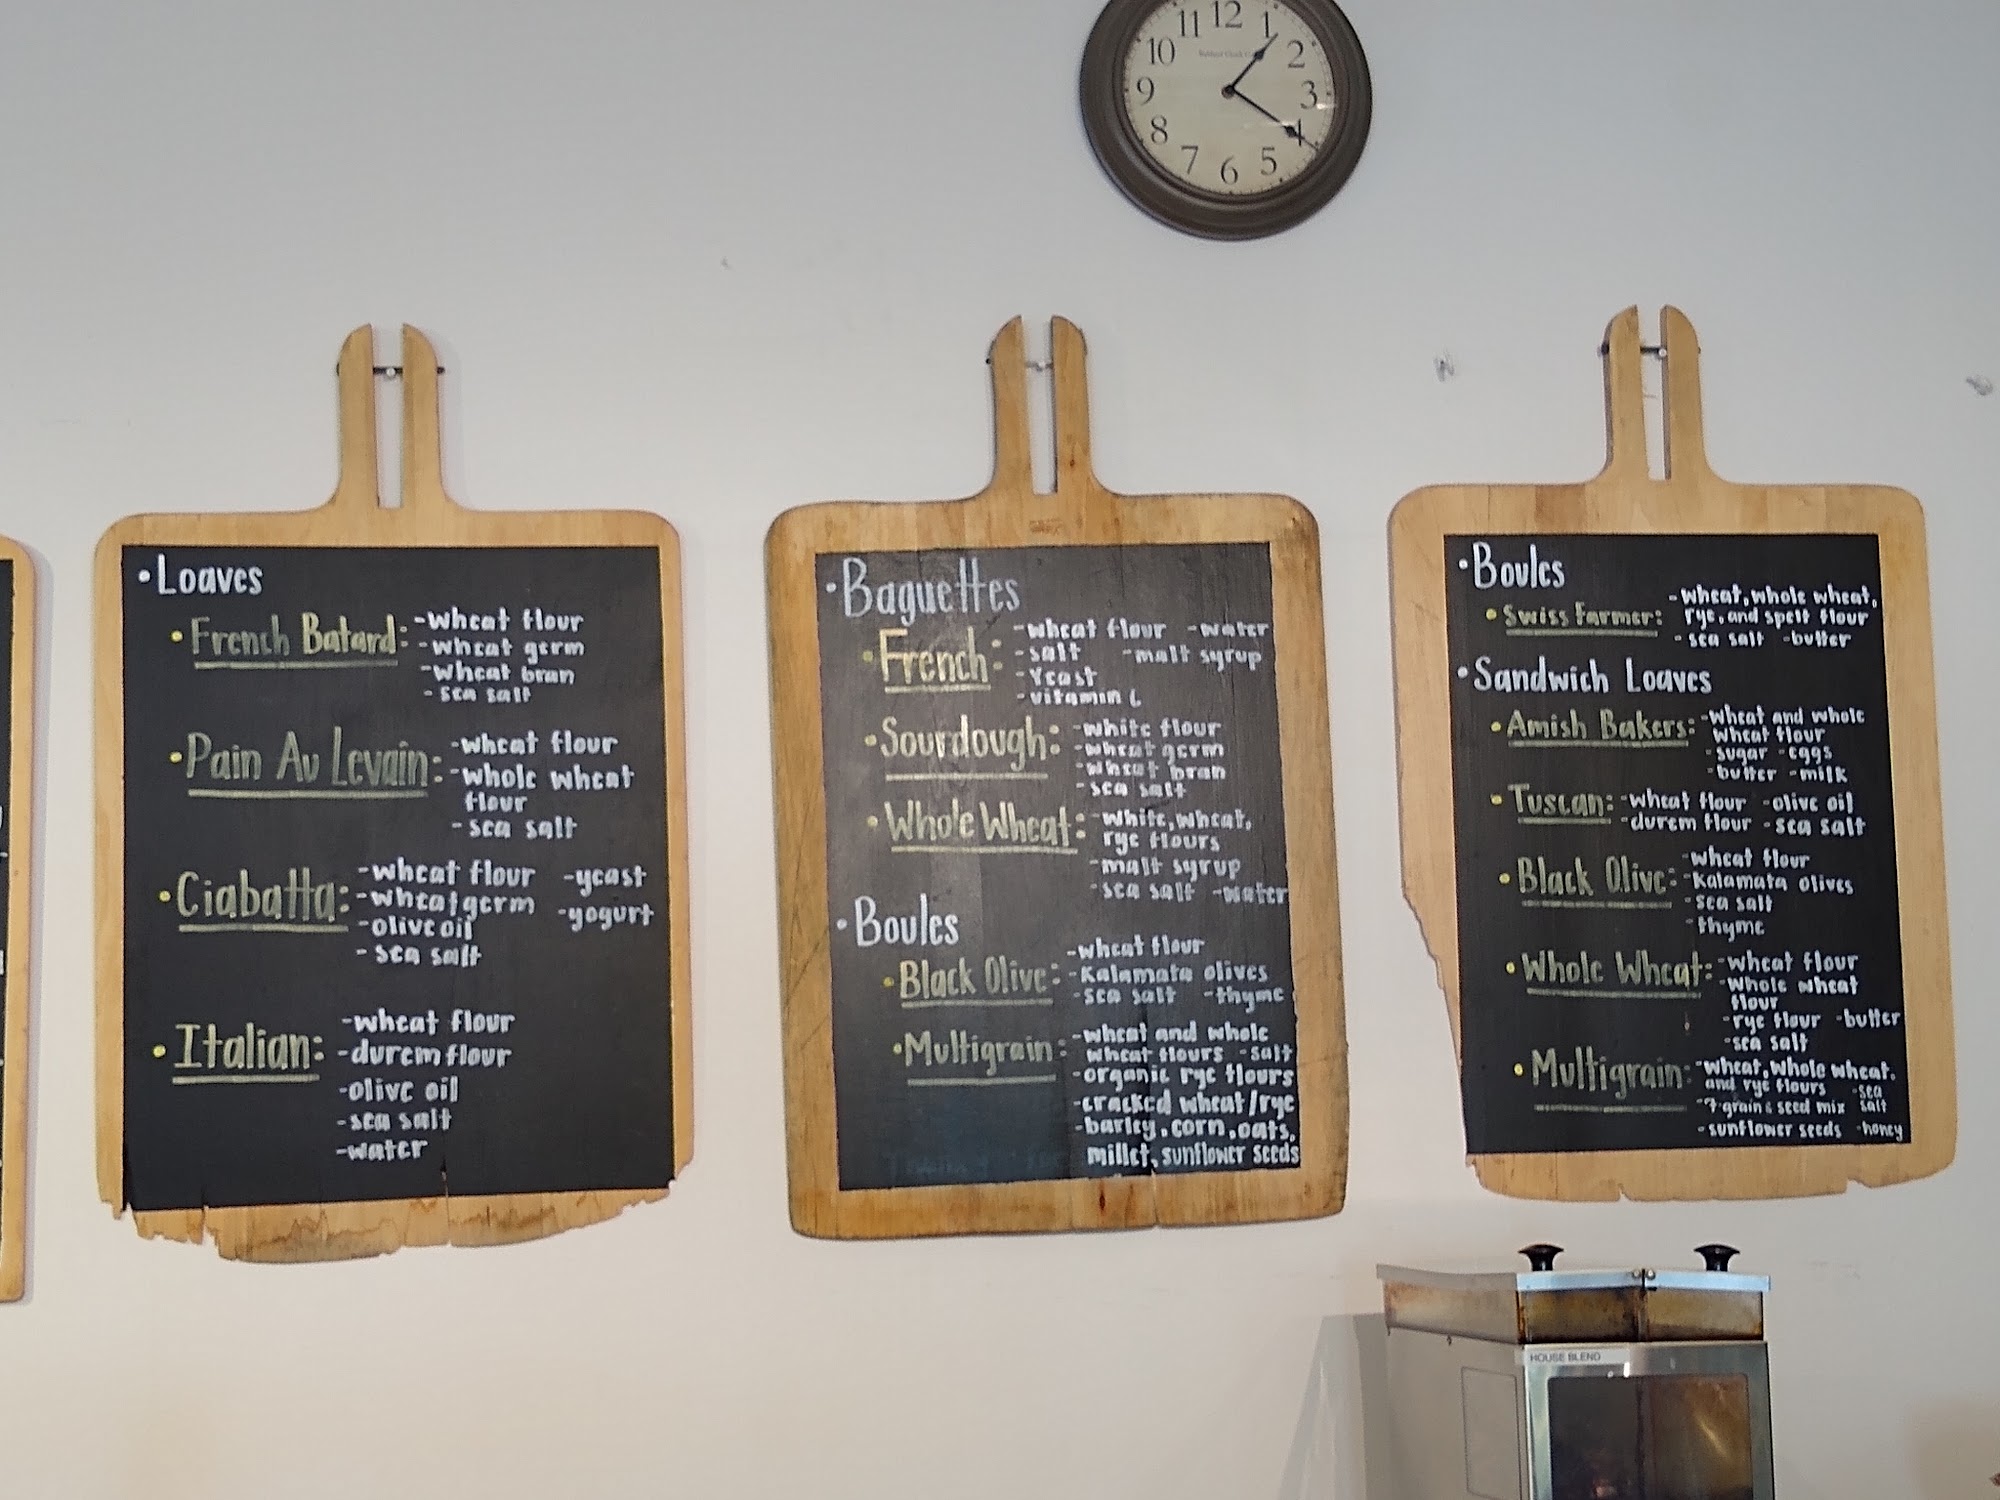 11 12 1
10 2
9 3
8 4
7 6 5
• Loaves
• French Batard: -wheat flour
-wheat germ
-wheat bran
- sea salt
• Pain Au Levain: -wheat flour
-whole wheat
flour
- sea salt
• Ciabatta: -wheat flour -yeast
-wheat germ -yogurt
-olive oil
- sea salt
• Italian: -wheat flour
-durem flour
-olive oil
-sea salt
-water
• Baguettes
• French: -wheat flour -water
-salt -malt syrup
-Yeast
-vitamin C
• Sourdough: -white flour
-wheat germ
-wheat bran
-sea salt
• Whole Wheat: -white, wheat,
rye flours
-malt syrup
-sea salt -water
• Boules
• Black Olive: -wheat flour
-Kalamata olives
-sea salt -thyme
• Multigrain: -wheat and whole
wheat flours -salt
-organic rye flours
-cracked wheat/rye
-barley, corn, oats,
millet, sunflower seeds
• Boules
• Swiss Farmer: -wheat, whole wheat,
rye, and spelt flour
- sea salt -butter
• Sandwich Loaves
• Amish Bakers: -wheat and whole
wheat flour
-sugar -eggs
-butter -milk
• Tuscan: -wheat flour -olive oil
-durem flour -sea salt
• Black Olive: -wheat flour
-Kalamata olives
-sea salt
-thyme
• Whole Wheat: -wheat flour
-whole wheat
flour
-rye flour -butter
-sea salt
• Multigrain: -wheat, whole wheat,
and rye flours -sea
salt
-7 grain & seed mix
-sunflower seeds -honey
HOUSE BLEND